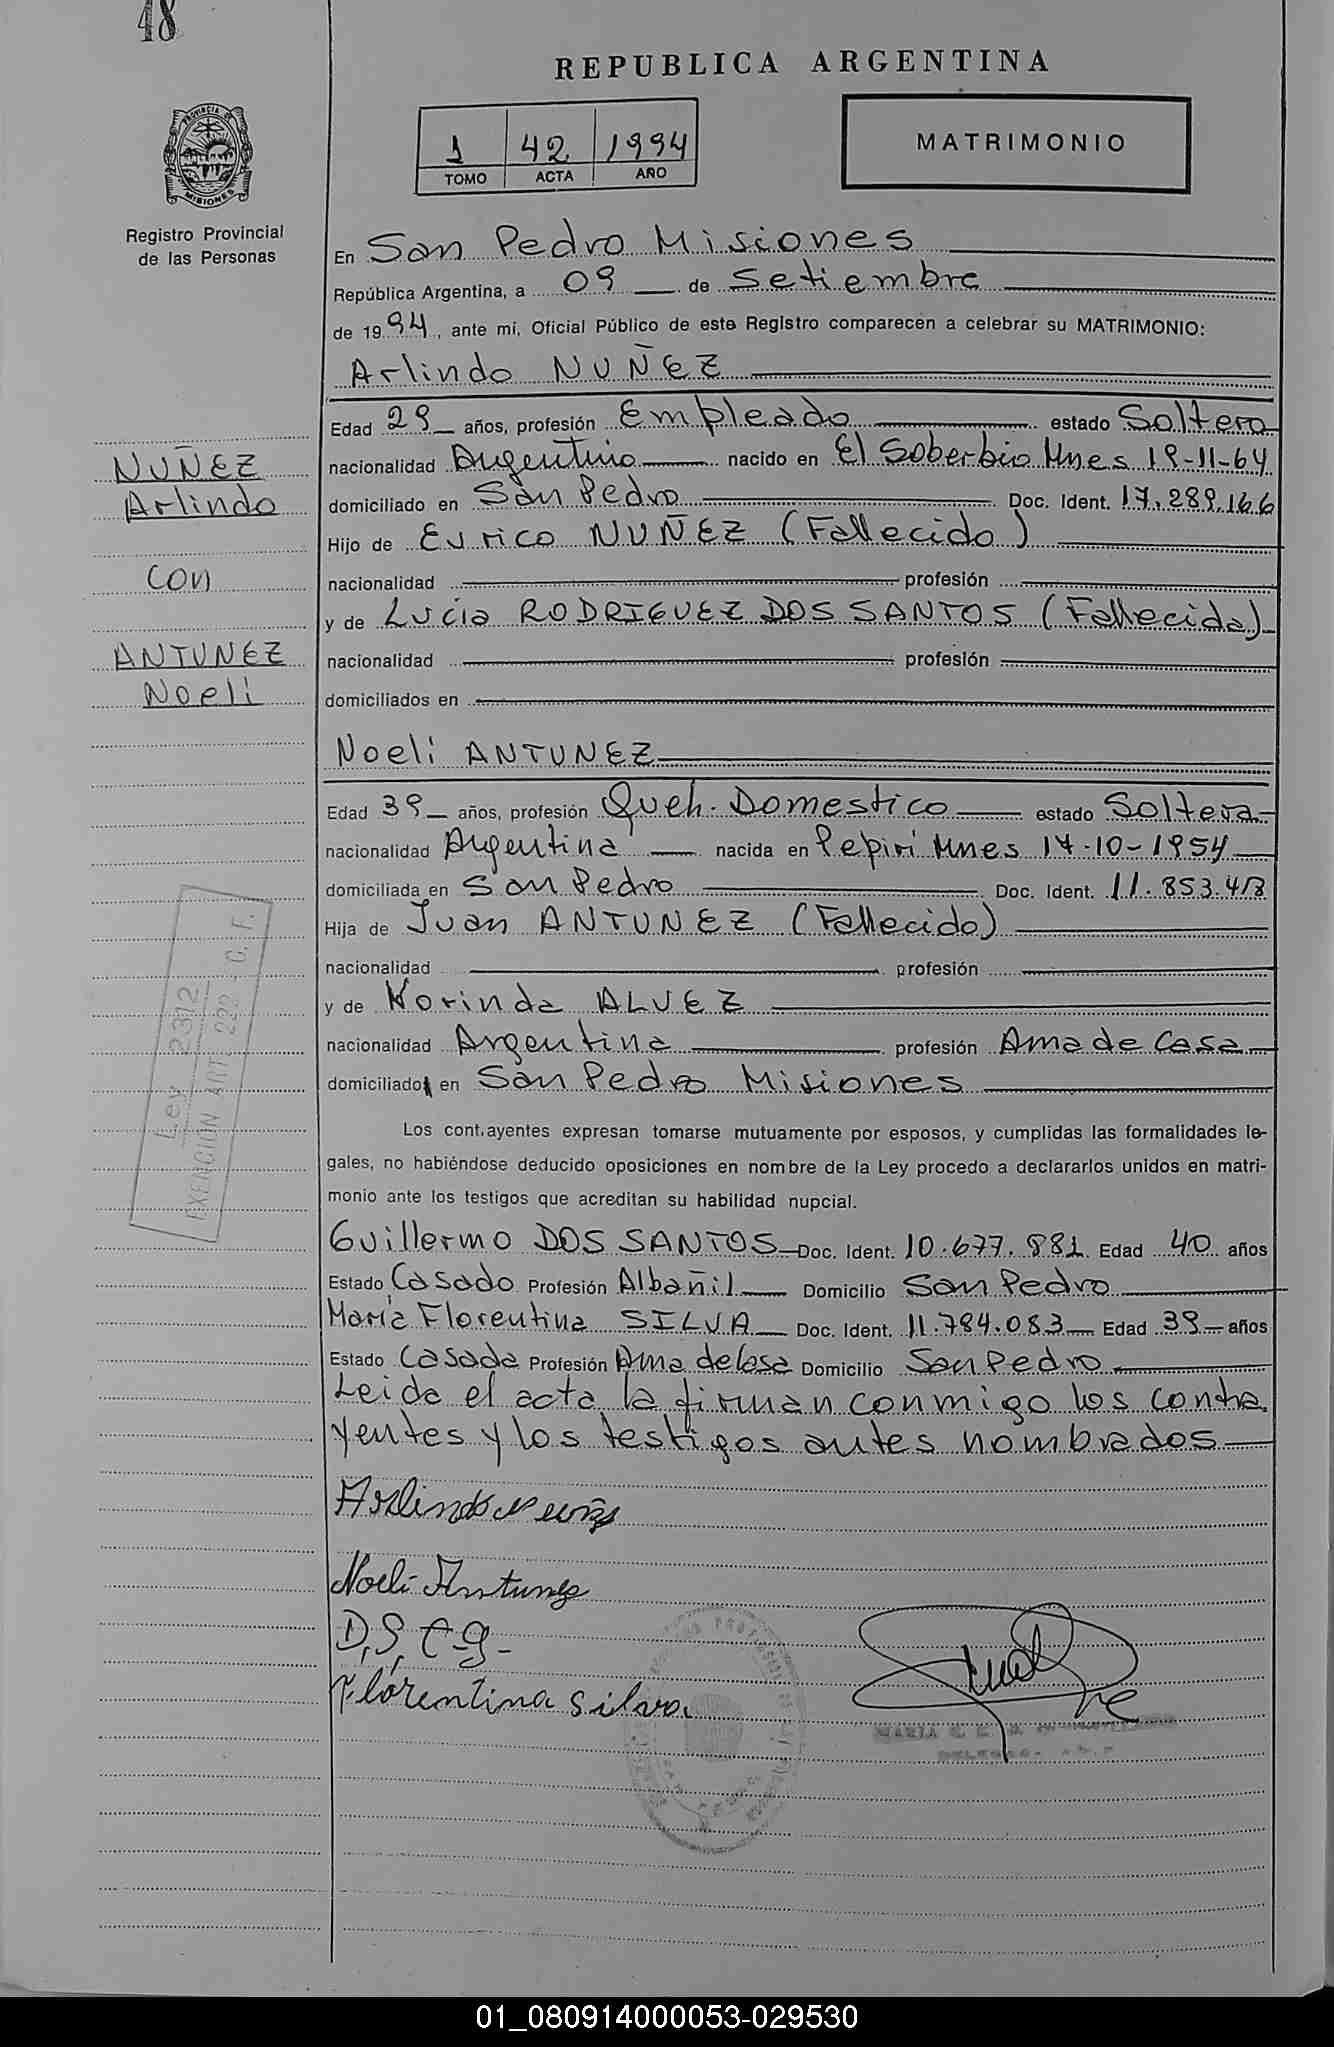 48
REPUBLICA ARGENTINA
1 42 1994
TOMO ACTA AÑO
MATRIMONIO
PROVINCIA DE
MISIONES
Registro Provincial
de las Personas
En San Pedro Misiones
República Argentina, a 09 de Setiembre
de 1994, ante mí, Oficial Público de este Registro comparecen a celebrar su MATRIMONIO:
Arlindo NUÑEZ
Edad 29 años, profesión Empleado estado Soltero
nacionalidad Argentino nacido en El Soberbio Mnes 19-11-64
domiciliado en San Pedro Doc. Ident. 17.289.166
Hijo de Eurico NUÑEZ (Fallecido)
nacionalidad profesión
y de Lucia RODRIGUEZ DOS SANTOS (Fallecida)
nacionalidad profesión
domiciliados en
NUÑEZ
Arlindo
con
ANTUNEZ
Noeli
Noeli ANTUNEZ
Edad 39 años, profesión Queh. Domestico estado Soltera
nacionalidad Argentina nacida en Pepirí Mnes 17-10-1954
domiciliada en San Pedro Doc. Ident. 11.853.413
Hija de Juan ANTUNEZ (Fallecido)
nacionalidad profesión
y de Norinda ALVEZ
nacionalidad Argentina profesión Ama de Casa
domiciliado en San Pedro Misiones
Ley 2312
EXENCION ART. 222 - C. F.
Los contrayentes expresan tomarse mutuamente por esposos, y cumplidas las formalidades le-
gales, no habiéndose deducido oposiciones en nombre de la Ley procedo a declararlos unidos en matri-
monio ante los testigos que acreditan su habilidad nupcial.
Guillermo DOS SANTOS Doc. Ident. 10.677.881 Edad 40 años
Estado Casado Profesión Albañil Domicilio San Pedro
María Florentina SILVA Doc. Ident. 11.784.083 Edad 39 años
Estado Casada Profesión Ama de Casa Domicilio San Pedro
Leida el acta la firman conmigo los contra
yentes y los testigos antes nombrados
Arlindo nuñez
Noeli Antunez
D,S, C g-
Florentina Silva
MARIA
01_080914000053-029530